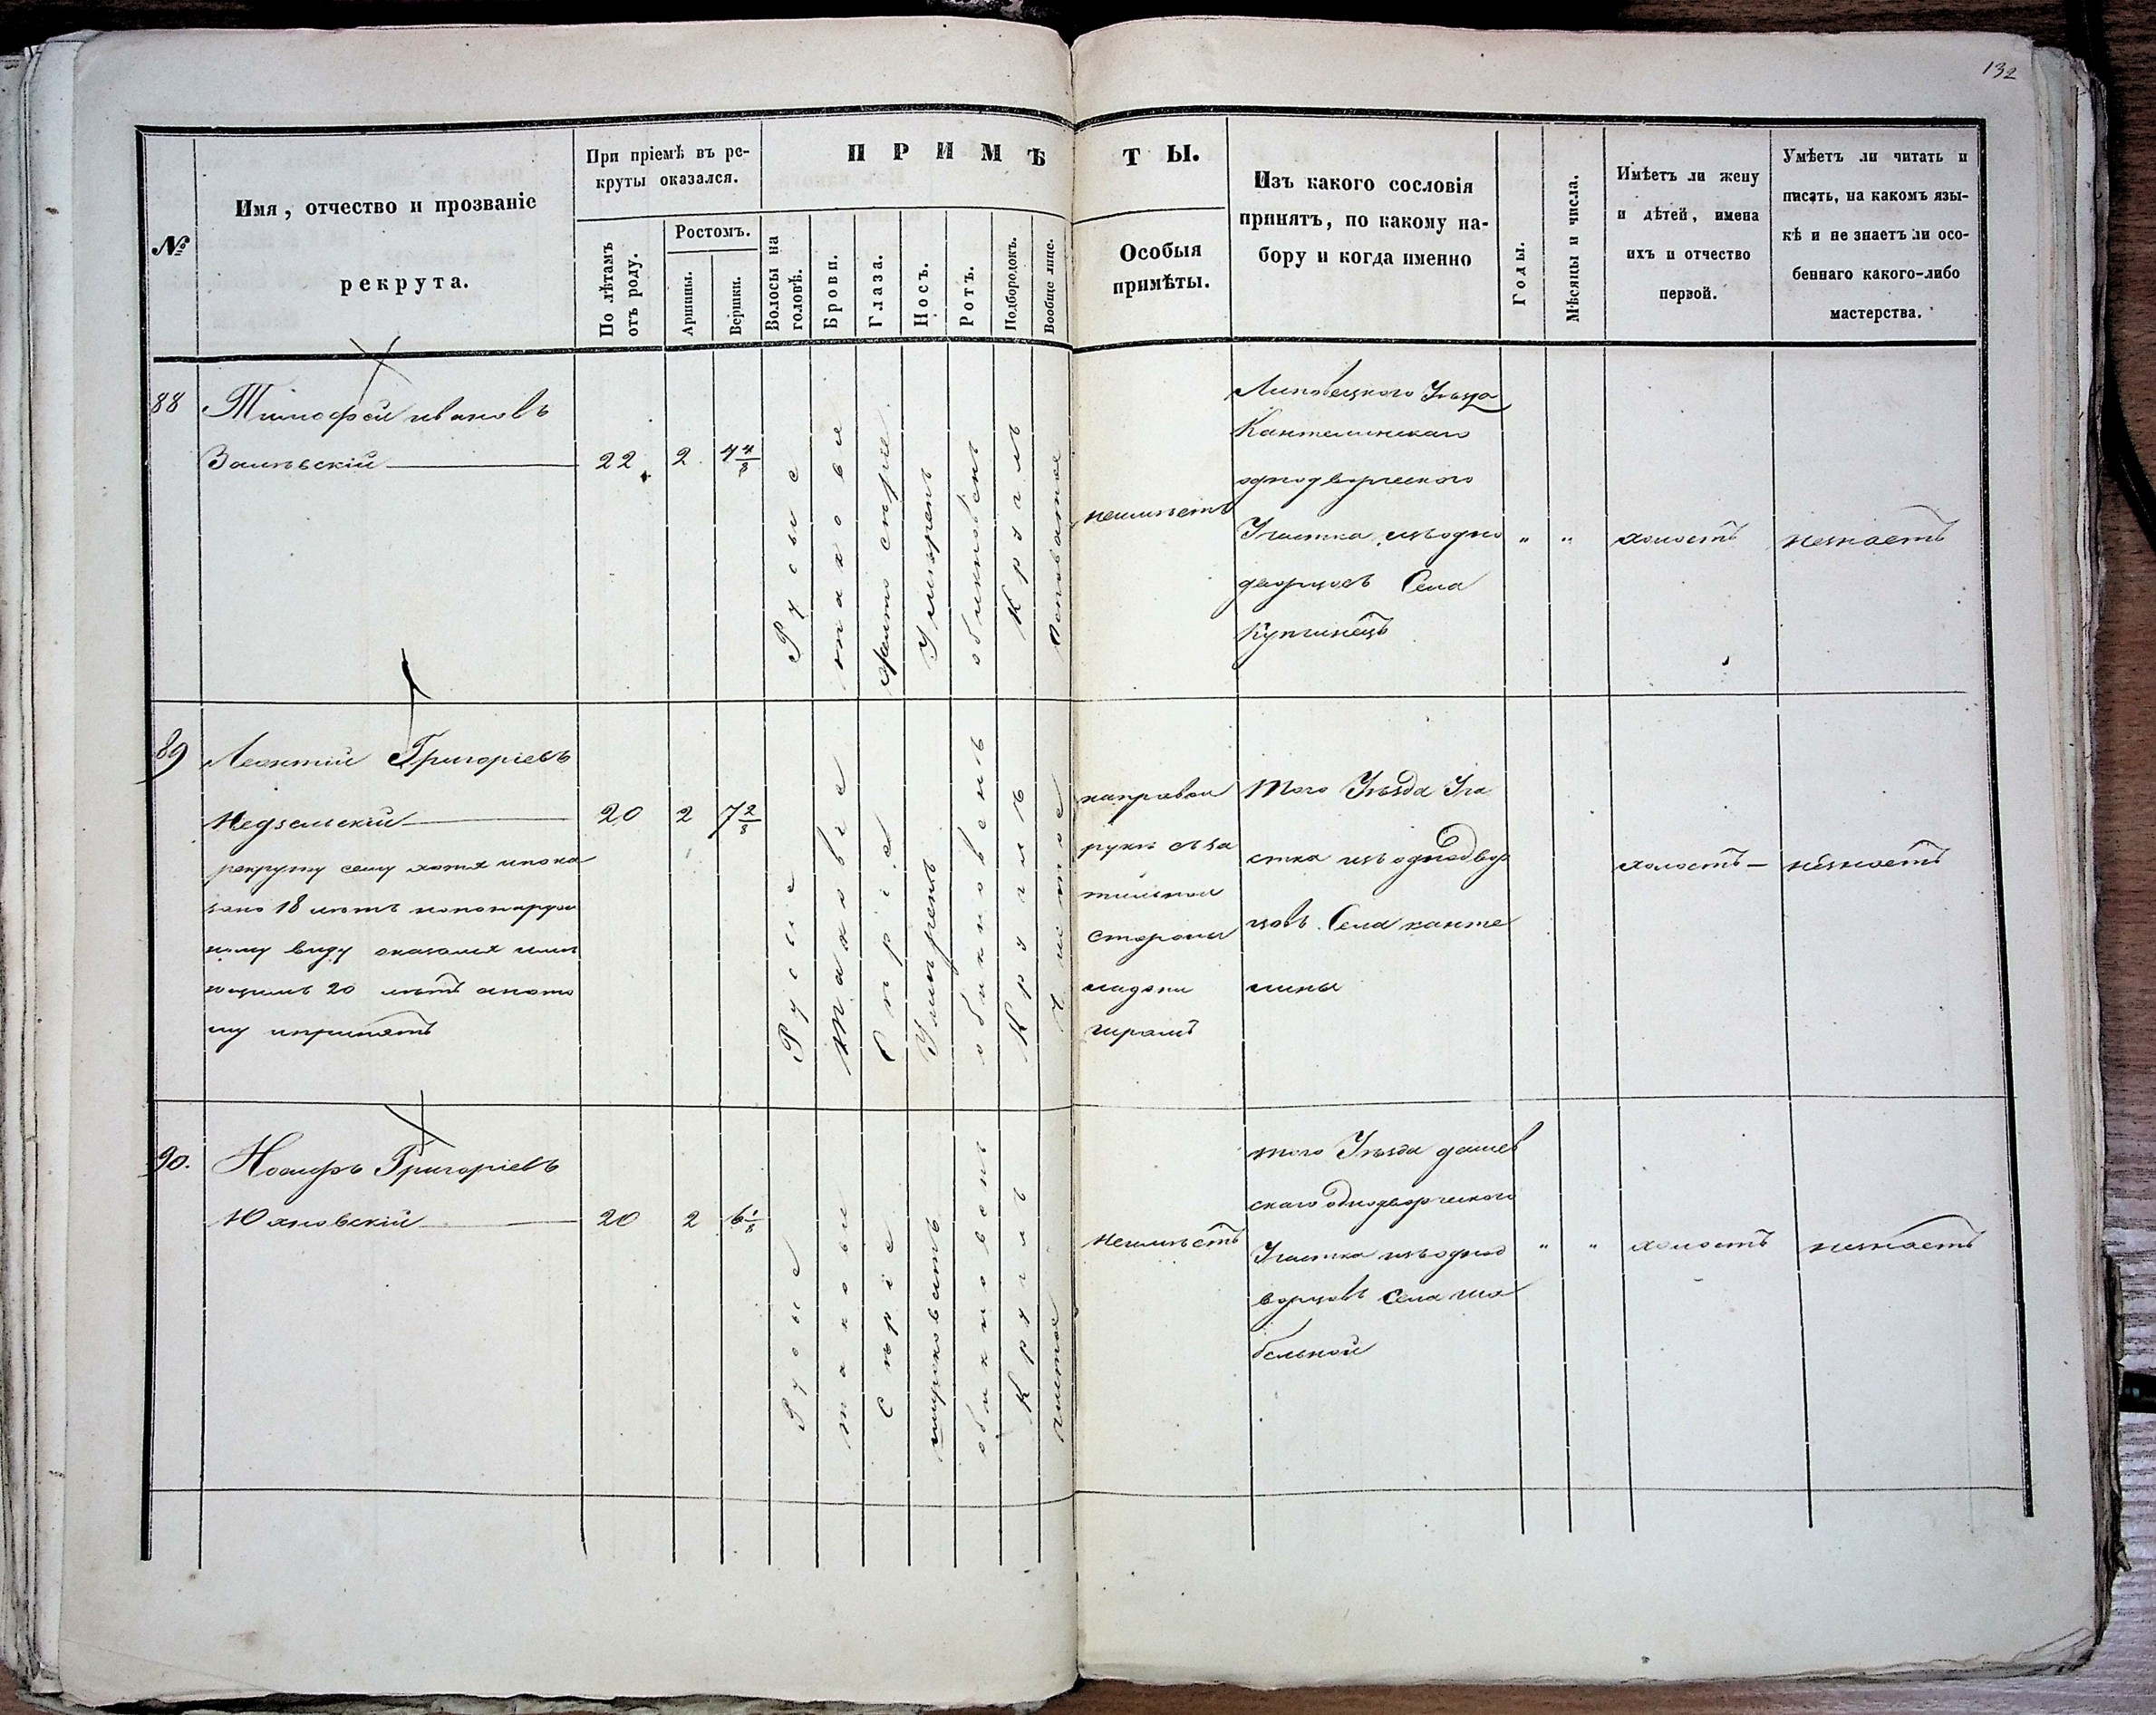 132
№
Имя, отчество и прозваніе
рекрута.
При пріемѣ въ ре-
круты оказался.
По лѣтамъ
отъ роду.
Ростомъ.
Аршины.
Вершки.
ПРИМѢТЫ.
Волосы на
головѣ.
Брови.
Глаза.
Носъ.
Ротъ.
Подбородокъ.
Вообще лице.
Особыя
примѣты.
Изъ какого сословія
принятъ, по какому на-
бору и когда именно
Годы.
Мѣсяцы и числа.
Имѣетъ ли жену
и дѣтей, имена
ихъ и отчество
первой.
Умѣетъ ли читать и
писать, на какомъ язы-
кѣ и не знаетъ ли осо-
беннаго какого-либо
мастерства.
88
Тимофей ивановъ
22
2
4 4/8
Русые
таковыя
желто сѣрые
Умѣренъ
обыкновенъ
Круглъ
неимѣетъ
Липовецкого Уѣзда
Кантелинскаго
однодворческого
Участка изъ одно
дворцовъ Села
Купчинецъ
" "
холостъ
незнаетъ
89
Леонтій Григоріевъ
Недзельскій
рекруту сему хотя и пока
зано 18 лѣтъ но по наруж
ному виду оказался имѣ
ющимъ 20 лѣтъ а пото
му и принятъ
20
2
7 2/8
Русые
Таковые
Сѣріе
Умѣренъ
обыкновенъ
Круглъ
Чистое
на правой
руки
стороны
ладони
шрамъ
Того Уѣзда Уча
стка изъ однодвор
цовъ Села Канте
лины
холостъ
незнаетъ
90.
Иосифъ Григоріевъ
Юхновскій
20
2
6 1/8
Русые
таковы
Сѣріе
широковатъ
обыкновенъ
Круглъ
чистое
неимѣетъ
того Уѣзда дашев
скаго однодворческого
Участка изъ однод
ворцовъ Села ша
бельной
" "
холостъ
незнаетъ